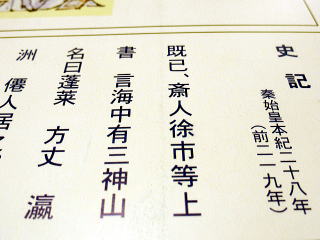 史記
秦始皇本紀二十八年
(前二一九年)
既已、斎人徐市等上
書　言海中有三神山
名曰蓬莱　方丈　瀛
洲　僊人居之